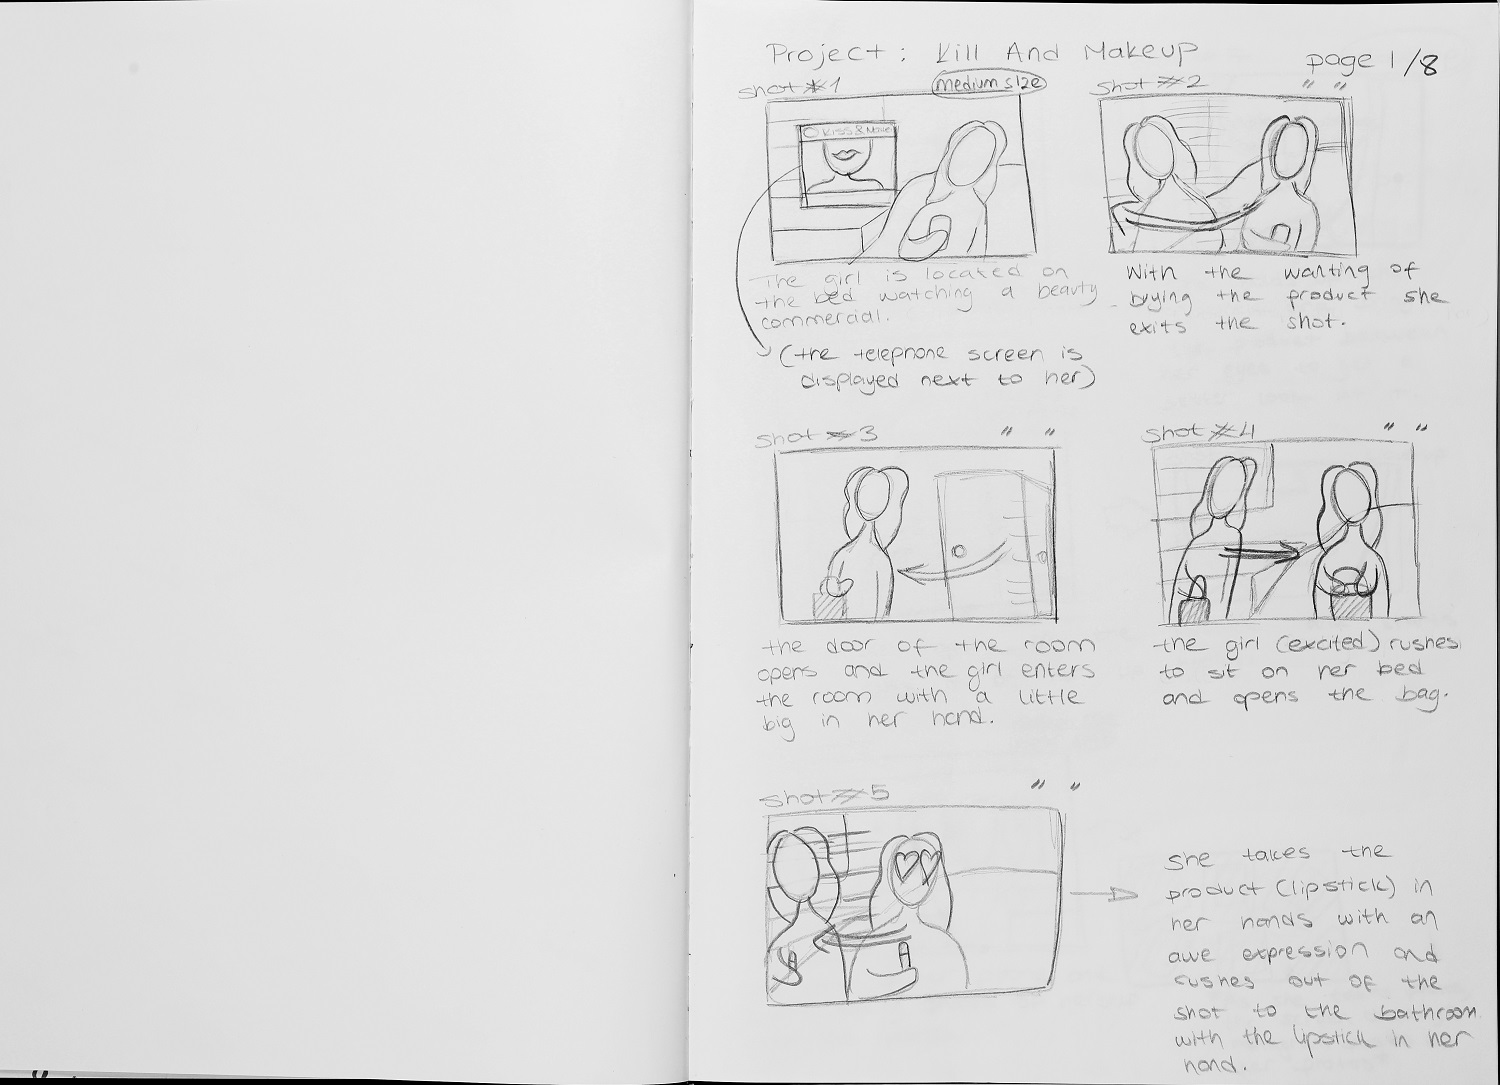 Project: Kill And Makeup
page 1/8
shot #1
medium size
Kiss & Make
The girl is located on
the bed watching a beauty
commercial.
(the telephone screen is
displayed next to her)
shot #2
" "
With the wanting of
buying the product she
exits the shot.
shot #3
" "
the door of the room
opens and the girl enters
the room with a little
big in her hand.
shot #4
" "
the girl (excited) rushes
to sit on her bed
and opens the bag.
shot #5
" "
She takes the
product (lipstick) in
her hands with an
awe expression and
rushes out of the
shot to the bathroom
with the lipstick in her
hand.